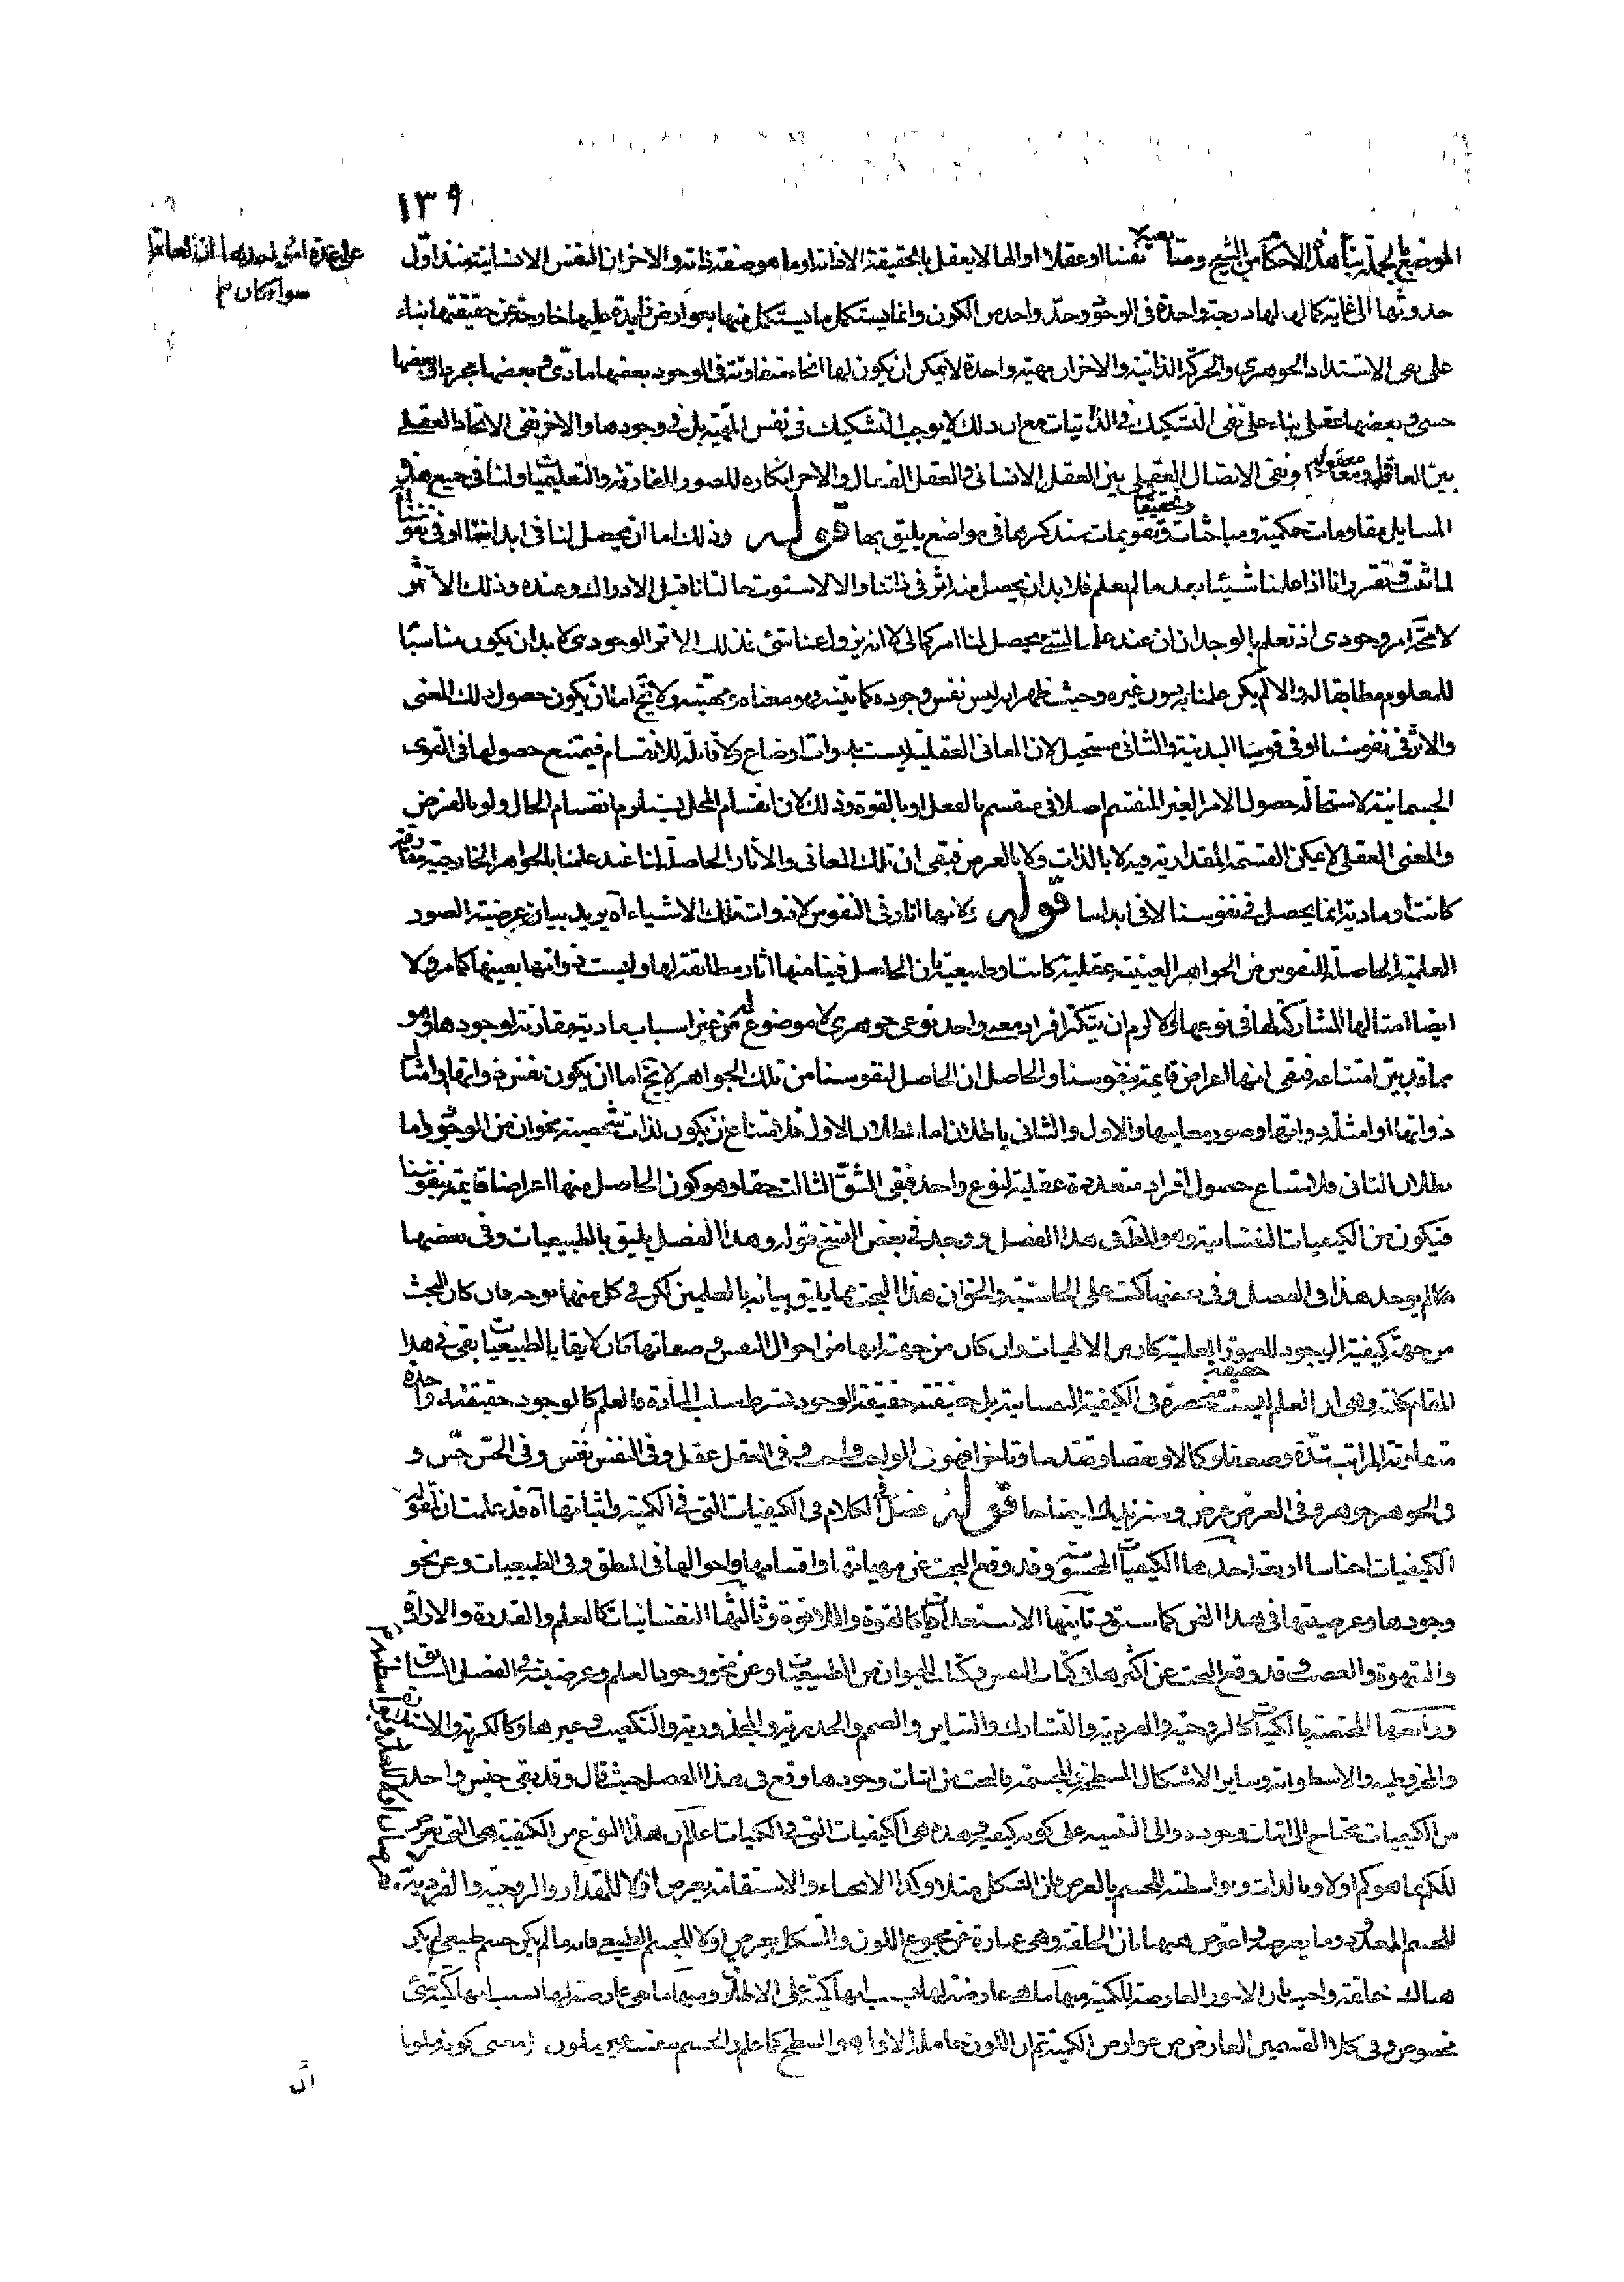 ١٣٩
على عدة امور احدها ان العاقل
سواء كان
الموضع بالجملة بناء هذه الاحكام من الشيخ ومتابعيه نفسا او عقلا او الها لا يعقل بالحقيقة الا ذاته او ما هو صفة ذاته والاخر ان النفس الانسانية منذ اول
حدوثها الى غاية كمالها لها درجة واحدة فى الوجود وحد واحد من الكون وانما يستكمل ما يستكمل منها بعوارض زايدة عليها خارجة عن حقيقتها بناء
على نفى الاشتداد الجوهرى والحركة الذاتية والاخر ان مهية واحدة لا يمكن ان يكون لها انحاء متفاوتة فى الوجود بعضها مادى وبعضها مجرد وبعضها
حسى وبعضها عقلى بناء على نفى التشكيك فى الذاتيات مع ان ذلك لا يوجب التشكيك فى نفس المهية بل فى وجودها والاخر نفى الاتحاد العقلى
بين العاقل ومعقوله ونفى الاتصال العقلى بين العقل الانسانى والعقل الفعال والاخر انكاره للصور المفارقة والتعليميات ولنا فى جميع هذه
المسايل مقاومات حكمية ومباحثات وتحقيقات وتقويمات سنذكرها فى مواضع يليق بها قوله وذلك اما ان يحصل لنا فى ابداننا او فى نفوسنا
لما ثبت وتقرر انا اذا علمنا شيئا بعد ما لم نعلم فلا بد ان يحصل منه اثر فى ذاتنا والا لاستوت حالتانا قبل الادراك وعنده وذلك الاثر
لا محة امر وجودى اذ نعلم بالوجدان ان عند علمنا بالشئ يحصل لنا امر كمالى لا انه يزول عنا شئ فذلك الاثر الوجودى لا بد ان يكون مناسبا
للمعلوم مطابقا له والا لم يكن علمنا به دون غيره وحيث ظهر انه ليس نفس وجوده كما بينه فهو معناه ومهيته ولا يخ اما ان يكون حصول ذلك المعنى
والاثر فى نفوسنا او فى قوينا البدنية والثانى مستحيل لان المعانى العقلية ليست بذوات اوضاع ولا قابلة للانقسام فيمتنع حصولها فى القوى
الجسمانية لاستحالة حصول الامر الغير المنقسم اصلا فى منقسم بالفعل او بالقوة وذلك لان انقسام المحل يستلزم انقسام الحال ولو بالعرض
والمعنى العقلى لا يمكن القسمة المقدارية فيه لا بالذات ولا بالعرض فبقى ان تلك المعانى والاثار الحاصلة لنا عند علمنا بالجواهر الخارجية مفارقة
كانت او مادية انما يحصل فى نفوسنا لا فى ابداننا قوله ولانها اثار فى النفوس لا ذوات تلك الاشياء آه يريد بيان عرضية الصور
العلمية الحاصلة للنفوس من الجواهر العينية عقلية كانت او طبيعية بان الحاصل فينا منها اثار مطابقة لها وليست ذواتها بعينها كما مر ولا
ايضا امثالها المشاركة لها فى نوعها والا لزم ان يتكثر افراد معنى واحد نوعى جوهرى لا موضوع له من غير اسباب مادية مقارنة لوجودها وهو
مما قد بين امتناعه فبقى انها اعراض قايمة بنفوسنا والحاصل ان الحاصل لنفوسنا من تلك الجواهر لا يخ اما ان يكون نفس ذواتها وامثال
ذواتها او امثلة ذواتها وصور معانيها والاول والثانى باطلان اما بطلان الاول فلامتناع ان يكون لذات شخصية نحوان من الوجود واما
بطلان الثانى فلامتناع حصول افراد متعددة عقلية لنوع واحد فبقى الشق الثالث حقا وهو كون الحاصل منها اعراضا قايمة بنفوسنا
فيكون من الكيفيات النفسانية وهو المطلوب هذا الفصل ووجد فى بعض النسخ قوله وهذا الفصل يليق بالطبيعيات وفى بعضها
لم يوجد هذا فى الفصل وفى بعضها كتب على الحاشية والحق ان هذا البحث مما يليق بيانه بالعلمين لكن فى كل منهما بوجه فان كان البحث
من جهة كيفية الوجود للصور العلمية كان من الالهيات وان كان من جهة انها من احوال النفس وصفاتها كان لايقا بالطبيعيات بقى فى هذا
المقام كلام وهى ان العلم ليست حقيقته منحصرة فى الكيفية النفسانية بل حقيقته حقيقة الوجود بشرط سلب المادة فالعلم كالوجود حقيقة واحدة
متفاوتة المراتب شدة وضعفا وكمالا ونقصا وتقدما وتاخرا فهو فى الواجب واجب وفى العقل عقل وفى النفس نفس وفى الحس حس و
فى الجوهر جوهر وفى العرض عرض وسنزيدك ايضاحا قوله فصل فى الكلام فى الكيفيات التى فى الكمية واثباتها آه قد علمت ان لمقولة
الكيفيات اجناسا اربعة احدها الكيفيات المحسوسة وقد وقع البحث عن مهياتها واقسامها واحوالها فى المنطق وفى الطبيعيات وعن نحو
وجودها وعرضيتها فى هذا الفن كما سبق وثانيها الاستعداديات كالقوة واللاقوة وثالثها النفسانيات كالعلم والقدرة والارادة
والشهوة والغضب وقد وقع البحث عن اكثرها فى كتاب النفس وكتاب الحيوان من الطبيعيات وعن نحو وجود العلم وعرضيته فى الفصل السابق
ورابعها المختصة بالكميات كالزوجية والفردية والتشارك والتباين والصمم والجذرية والمجذورية والتكعيب وغيرها وكالكرية والاستدارة
والمخروطية والاسطوانة وساير الاشكال المسطحة والمجسمة فالبحث عن اثبات وجودها وقع فى هذا الفصل حيث قال وقد بقى جنس واحد
من الكيفيات يحتاج الى اثبات وجوده والى التنبيه على كونه كيفية وهذه هى الكيفيات التى فى الكميات اعلم ان هذا النوع من الكيفية هى التى يعرض
للكم بما هو كم اولا وبالذات وبواسطته للجسم بالعرض فان الشكل مثلا وكذا الانحناء والاستقامة يعرض اولا للمقدار والزوجية والفردية
للجسم المعدود وما يعرضه واعترض ههنا بان الخلقة وهى عبارة عن مجموع اللون والشكل يعرض اولا للجسم الطبيعى فانه ما لم يكن جسم طبيعى لم يكن
هناك خلقة واجيب بان الامور العارضة للكمية منها ما هى عارضة لها بسبب انها كمية على الاطلاق ومنها ما هى عارضة لها بسبب انها كمية شئ
مخصوص وفى كلا القسمين العارض من عوارض الكمية ثم ان اللون حامله الاول هو السطح كما علم والجسم بنفسه غير ملون اذ معنى كونه ملونا
ان